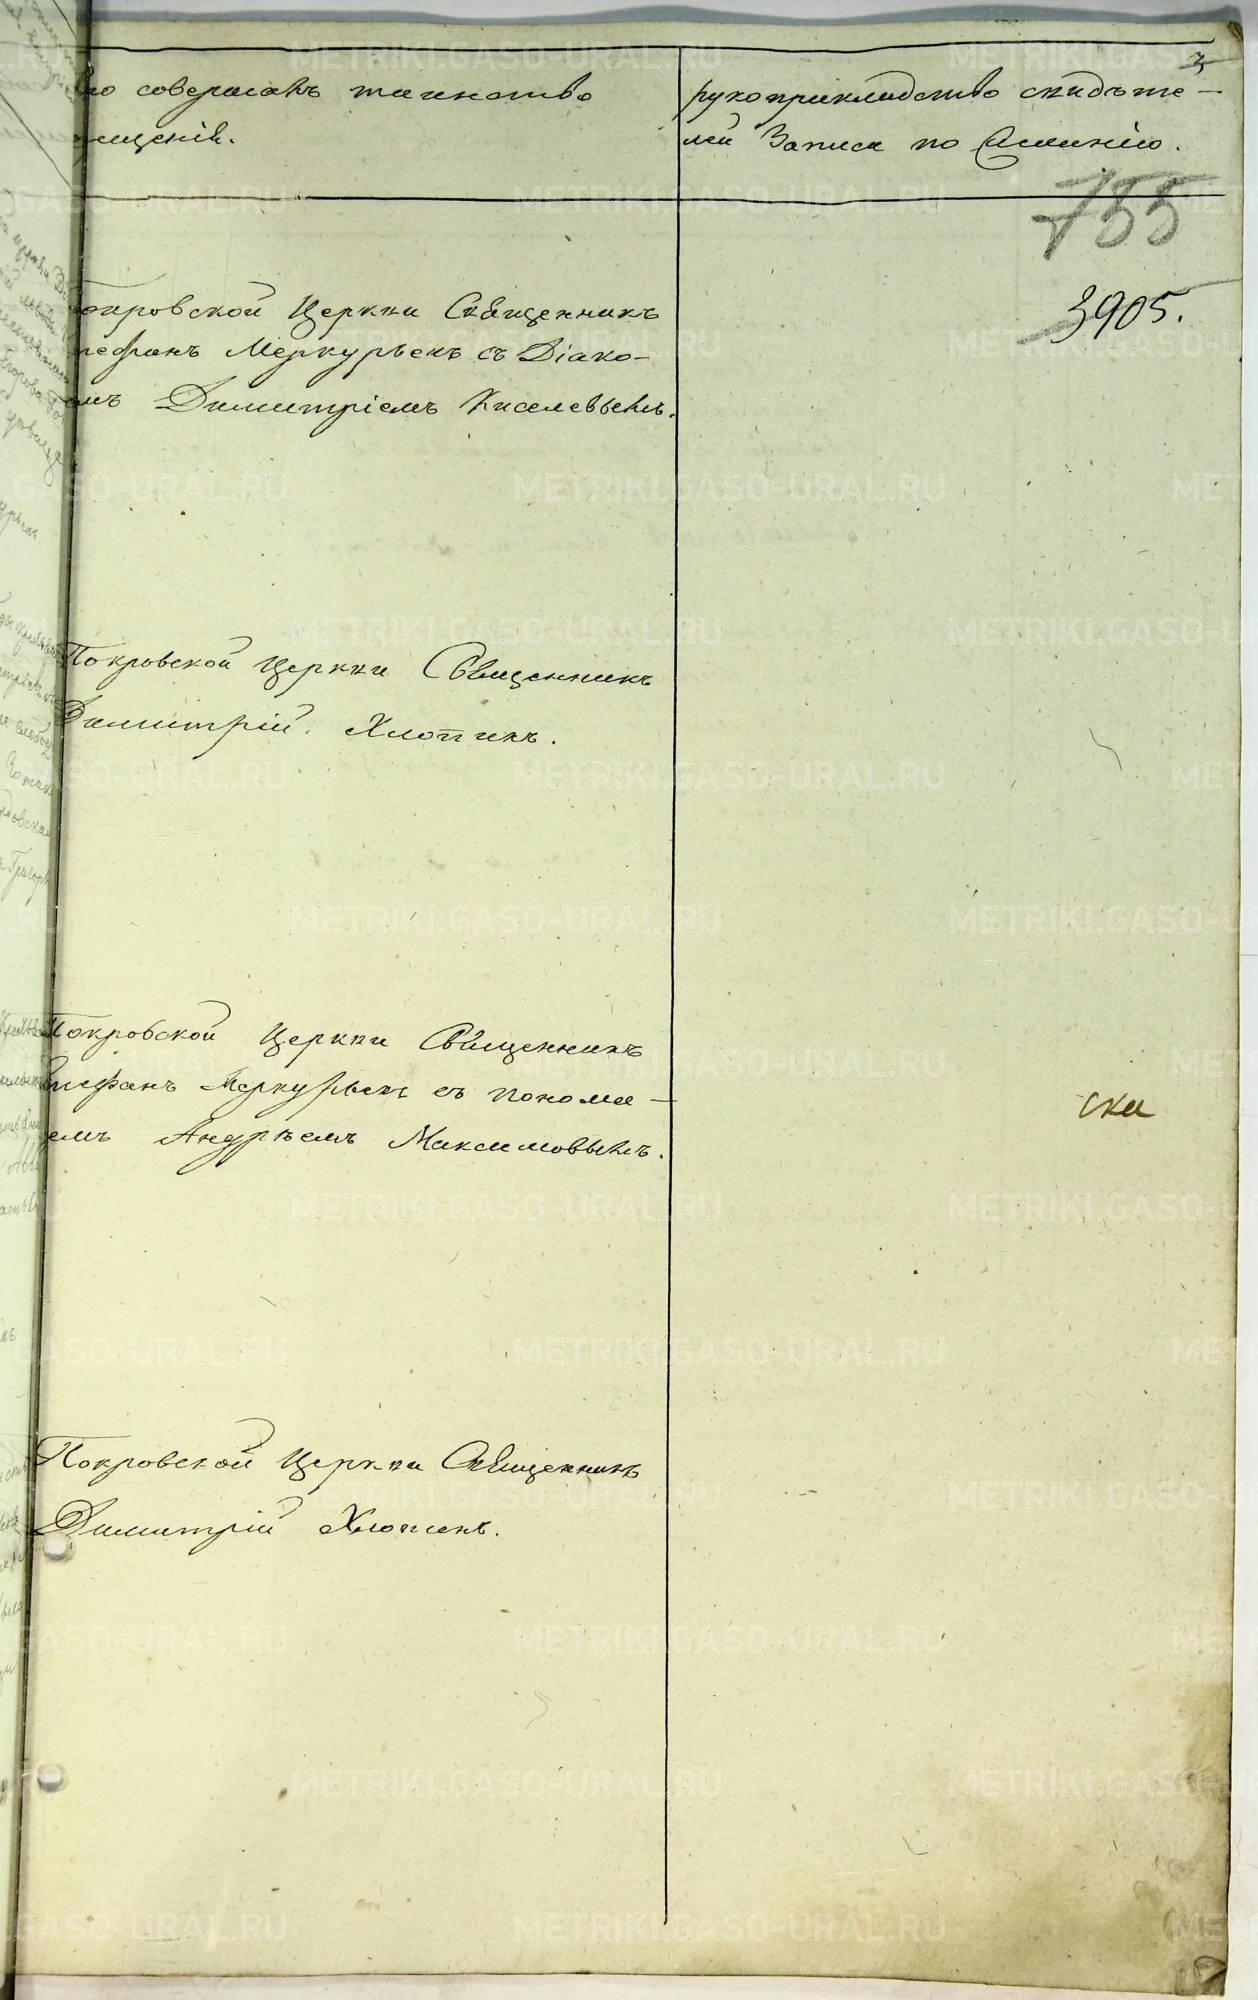 3
то совершалъ таинство
рещенія.
рукоприкладство свидѣте-
лей Записи по Желанію.
755
3905.
окровской Церкви Священникъ
тефанъ Меркурьевъ съ Діако-
омъ Димитріемъ Киселевымъ.
Покровской Церкви Священникъ
Димитрій Хлопинъ.
Покровской Церкви Священникъ
Стефанъ Меркурьевъ съ понома-
емъ Андреемъ Максимовымъ.
ска
Покровской Церкви Священникъ
Димитрій Хлопинъ.
METRIKI.GASO-URAL.RU